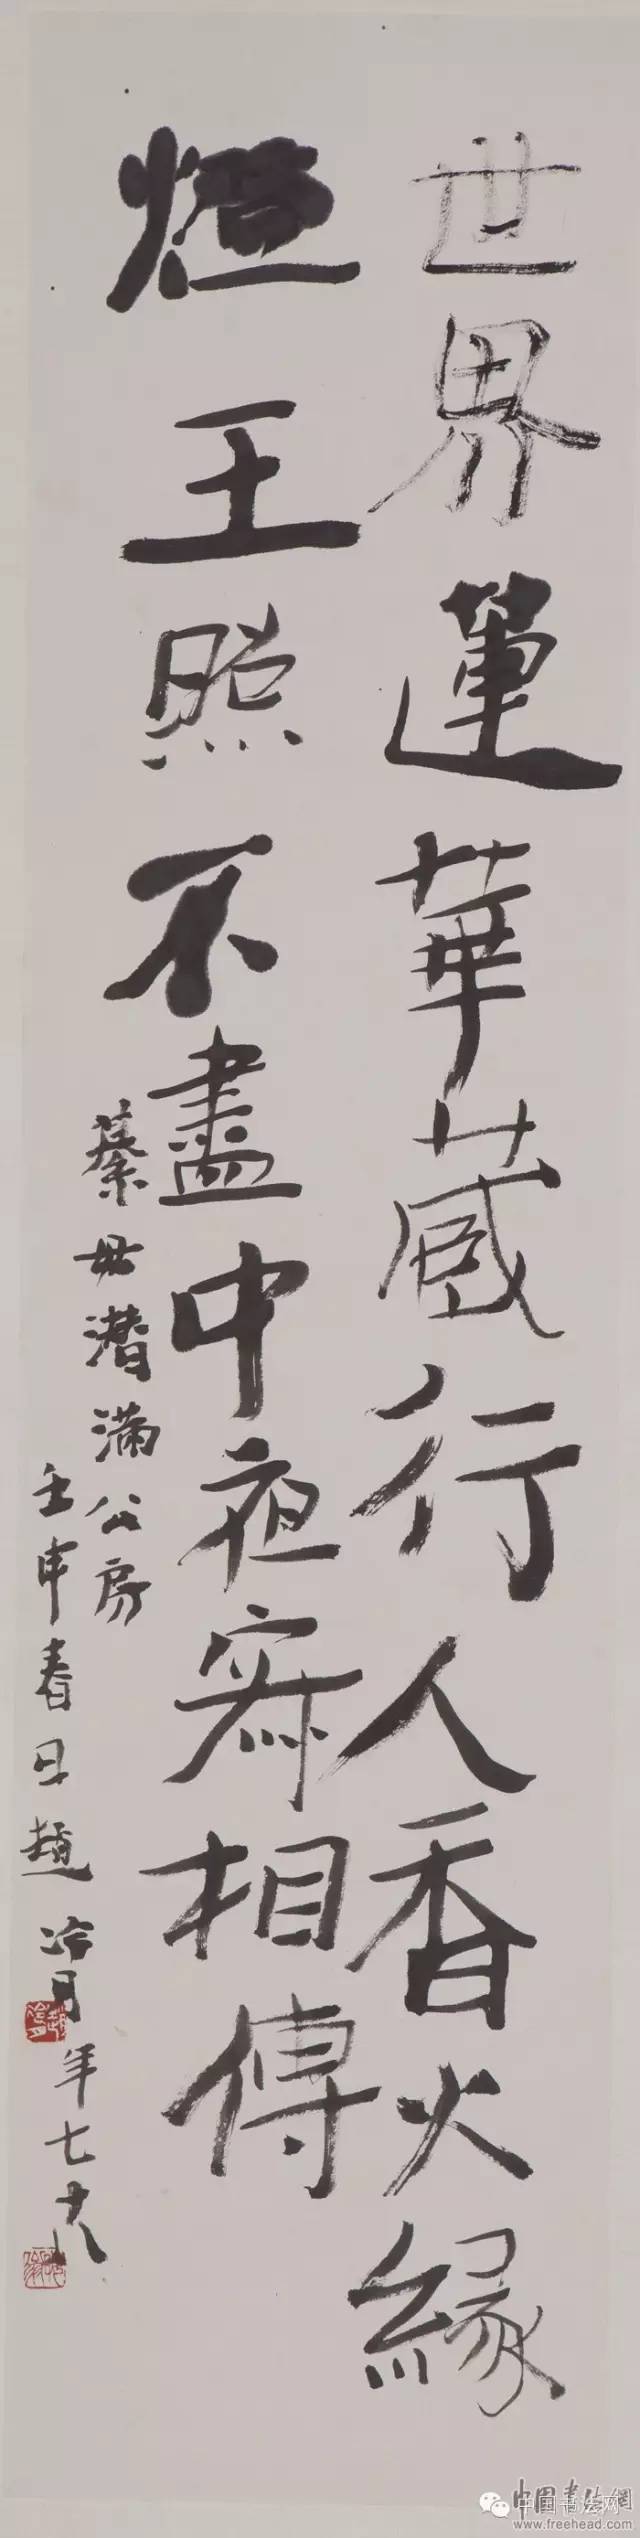 世界蓮華藏行人香火緣
燈王照不盡中夜寂相傳
綦毋潛滿公房
壬申春日趙冷月年七十八
中國書法網
中国书法网
www.freehead.com